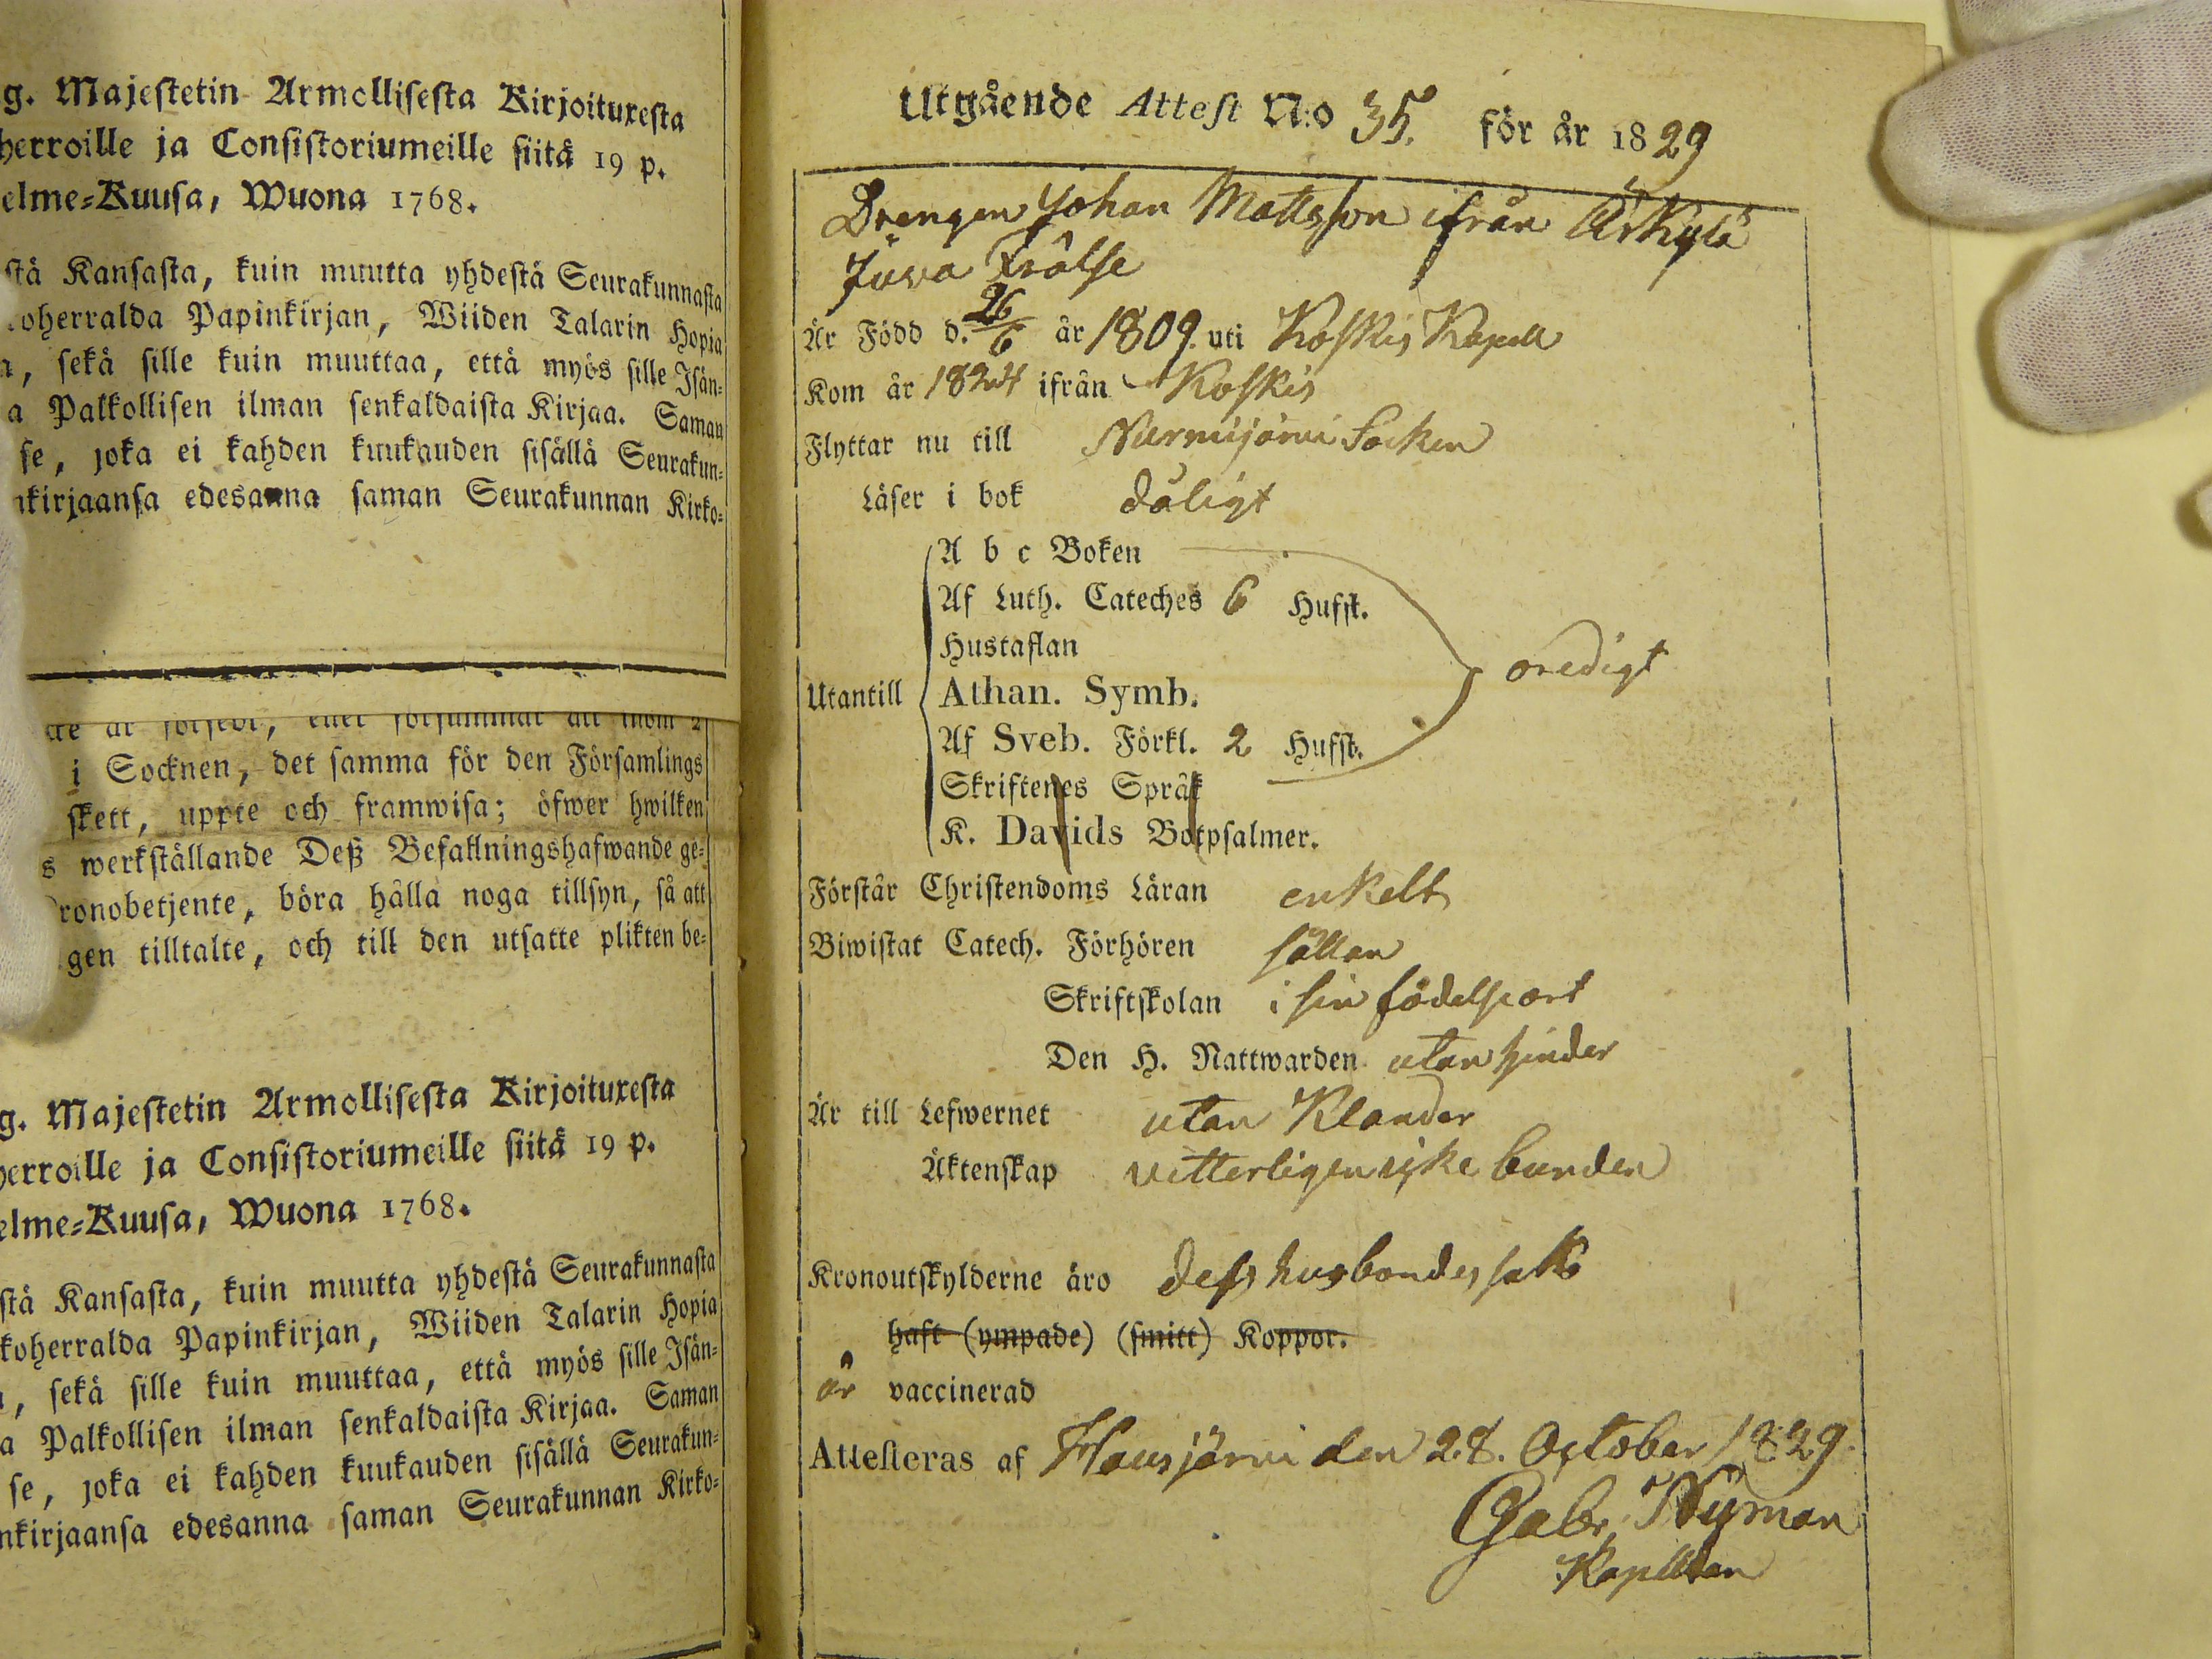 g. Majestetin Armollisesta Kirjoituxesta
herroille ja Consistoriumeille siitä 19 p.
elme-Kuusa, Wuona 1768.
stä Kansasta, kuin muutta yhdestä Seurakunnasta
oherralda Papinkirjan, Wiiden Talarin Hopia
, sekä sille kuin muuttaa, että myös sille Isän-
a Palkollisen ilman senkaldaista Kirjaa. Saman
se, joka ei kahden kuukauden sisällä Seurakun-
nkirjaansa edesanna saman Seurakunnan Kirko-
i Socknen, det samma för den Församlings
skett, uppte och framwisa; öfwer hwilken
s werkställande Deß Befallningshafwande ge-
ronobetjente, böra hålla noga tillsyn, så att
gen tilltalte, och till den utsatte plikten be-
g. Majestetin Armollisesta Kirjoituxesta
herroille ja Consistoriumeille siitä 19 p.
elme-Kuusa, Wuona 1768.
stä Kansasta, kuin muutta yhdestä Seurakunnasta
koherralda Papinkirjan, Wiiden Talarin Hopia
, sekä sille kuin muuttaa, että myös sille Isän-
a Palkollisen ilman senkaldaista Kirjaa. Saman
se, joka ei kahden kuukauden sisällä Seurakun-
nkirjaansa edesanna saman Seurakunnan Kirko-
Utgående Attest N:o 35. för år 1829
Drengen Johan Mattsson ifrån Arkylä
Juva Frälse
Är Född d. 26/6 år 1809. uti Koskis Kapell
Kom år 1824 ifrån Koskis
Flyttar nu till Nurmijärvi Socken
Läser i bok dåligt
A b c Boken
Af Luth. Cateches 6 Hufst.
Hustaflan
Utantill Athan. Symb. oredigt
Af Sveb. Förkl. 2 Hufst.
Skriftenes Språk
K. Davids Botpsalmer.
Förstår Christendoms Läran enkelt
Biwistat Catech. Förhören sällan
Skriftskolan i sin födelseort
Den H. Nattwarden utan hinder
Är till Lefwernet utan Klander
Äktenskap vetterligen icke bunden
Kronoutskylderne äro dess husbondes sak
haft (ympade) (smitt) Koppor.
är vaccinerad
Attesteras af Hausjärvi den 28. October 1829.
Gabr. Nyman
Kapellan